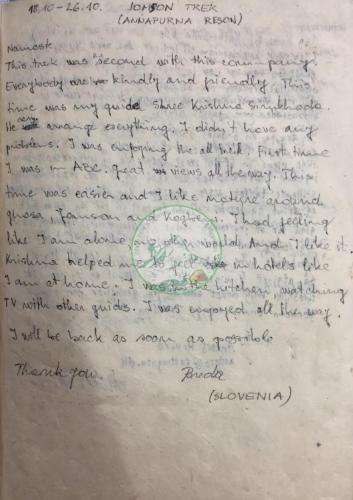 18.10-26.10. JOMSON TREK
(ANNAPURNA REGON)
Namaste
This trek was second with this company.
Everybody are so kindly and friendly. This
time was my guide Shree Krishna
He arrange everything. I didn't have any
problems. I was enjoying the all trek. First time
I was in ABC. great views all the way. This
time was easier and I like nature around
ghasa, and I had feeling
like I am alone, on other world. And I like it.
Krishna helped me to feel in hotels like
I am at home. I was in the kitchen, watching
TV with other guides. I was enjoyed all the way.
I will be back as soon as possible
Thank you.
(SLOVENIA)